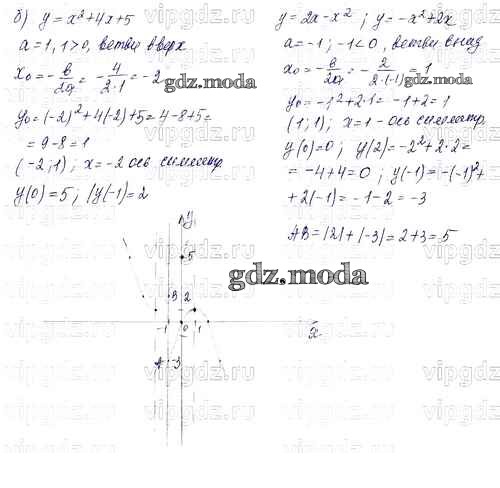 б) y = x² + 4x + 5
a = 1, 1 > 0, ветви вверх
x₀ = -в/2a = -4/2·1 = -2
y₀ = (-2)² + 4(-2) + 5 = 4 - 8 + 5 =
= 9 - 8 = 1
(-2; 1), x = -2 ось симметр.
y(0) = 5; y(-1) = 2
y = 2x - x²; y = -x² + 2x
a = -1; -1 < 0, ветви вниз
x₀ = -в/2a = -2/2·(-1) = 1
y₀ = -1² + 2·1 = -1 + 2 = 1
(1; 1); x = 1 - ось симметр.
y(0) = 0; y(2) = -2² + 2·2 =
= -4 + 4 = 0; y(-1) = -(-1)² +
+ 2(-1) = -1 - 2 = -3
AB = |2| + |-3| = 2 + 3 = 5
gdz.moda
gdz.moda
y
5
B 2
-1 0 1 x
A -3
vipgdz.ru